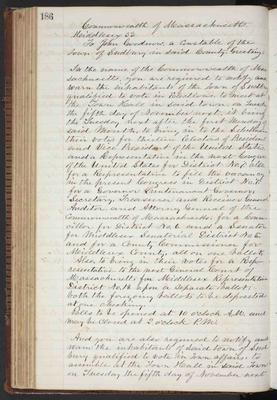 186
Commonwealth of Massachusetts.
Middlesex SS.
To John Goodnow, a Constable of the
Town of Sudbury in said County. Greeting:
In the name of the Commonwealth of Mas
sachusetts, you are required to notify and
warn the inhabitants of the Town of Sudbury
qualified to vote in elections to meet at
the Town Hall in said town on Tuesday
the fifth day of November next, it being
the Tuesday next after the first Monday in
said Month, to bring in to the Selectmen
their votes for thirteen Electors of President
and Vice President of the United States
and a Representative in the next Congress
of the United States for District No. 7 also
for a Representative to fill the vacancy
in the present Congress in District No. 7
for a Governor, Lieutenant Governor
Secretary, Treasurer and Receiver General
Auditor and Attorney General of the
Commonwealth of Massachusetts, for a Coun
cillor for District No. 6 and a Senator
for Middlesex Senatorial District No. 5
and for a County Commissioner for
Middlesex County, all on one Ballot.
Also to bring in their Votes for a Rep
resentative to the next General Court of
Massachusetts for Middlesex Representative
District No. upon a separate Ballot:
both the foregoing ballots to be deposited
at one checking.
Polls to be opened at 10 o'clock A.M. and
may be closed at 2 o'clock P.M.
And you are also required to notify and
warn the inhabitants of said town of Sud
bury qualified to vote in Town affairs to
assemble at the Town Hall in said Town
on Tuesday the fifth day of November next